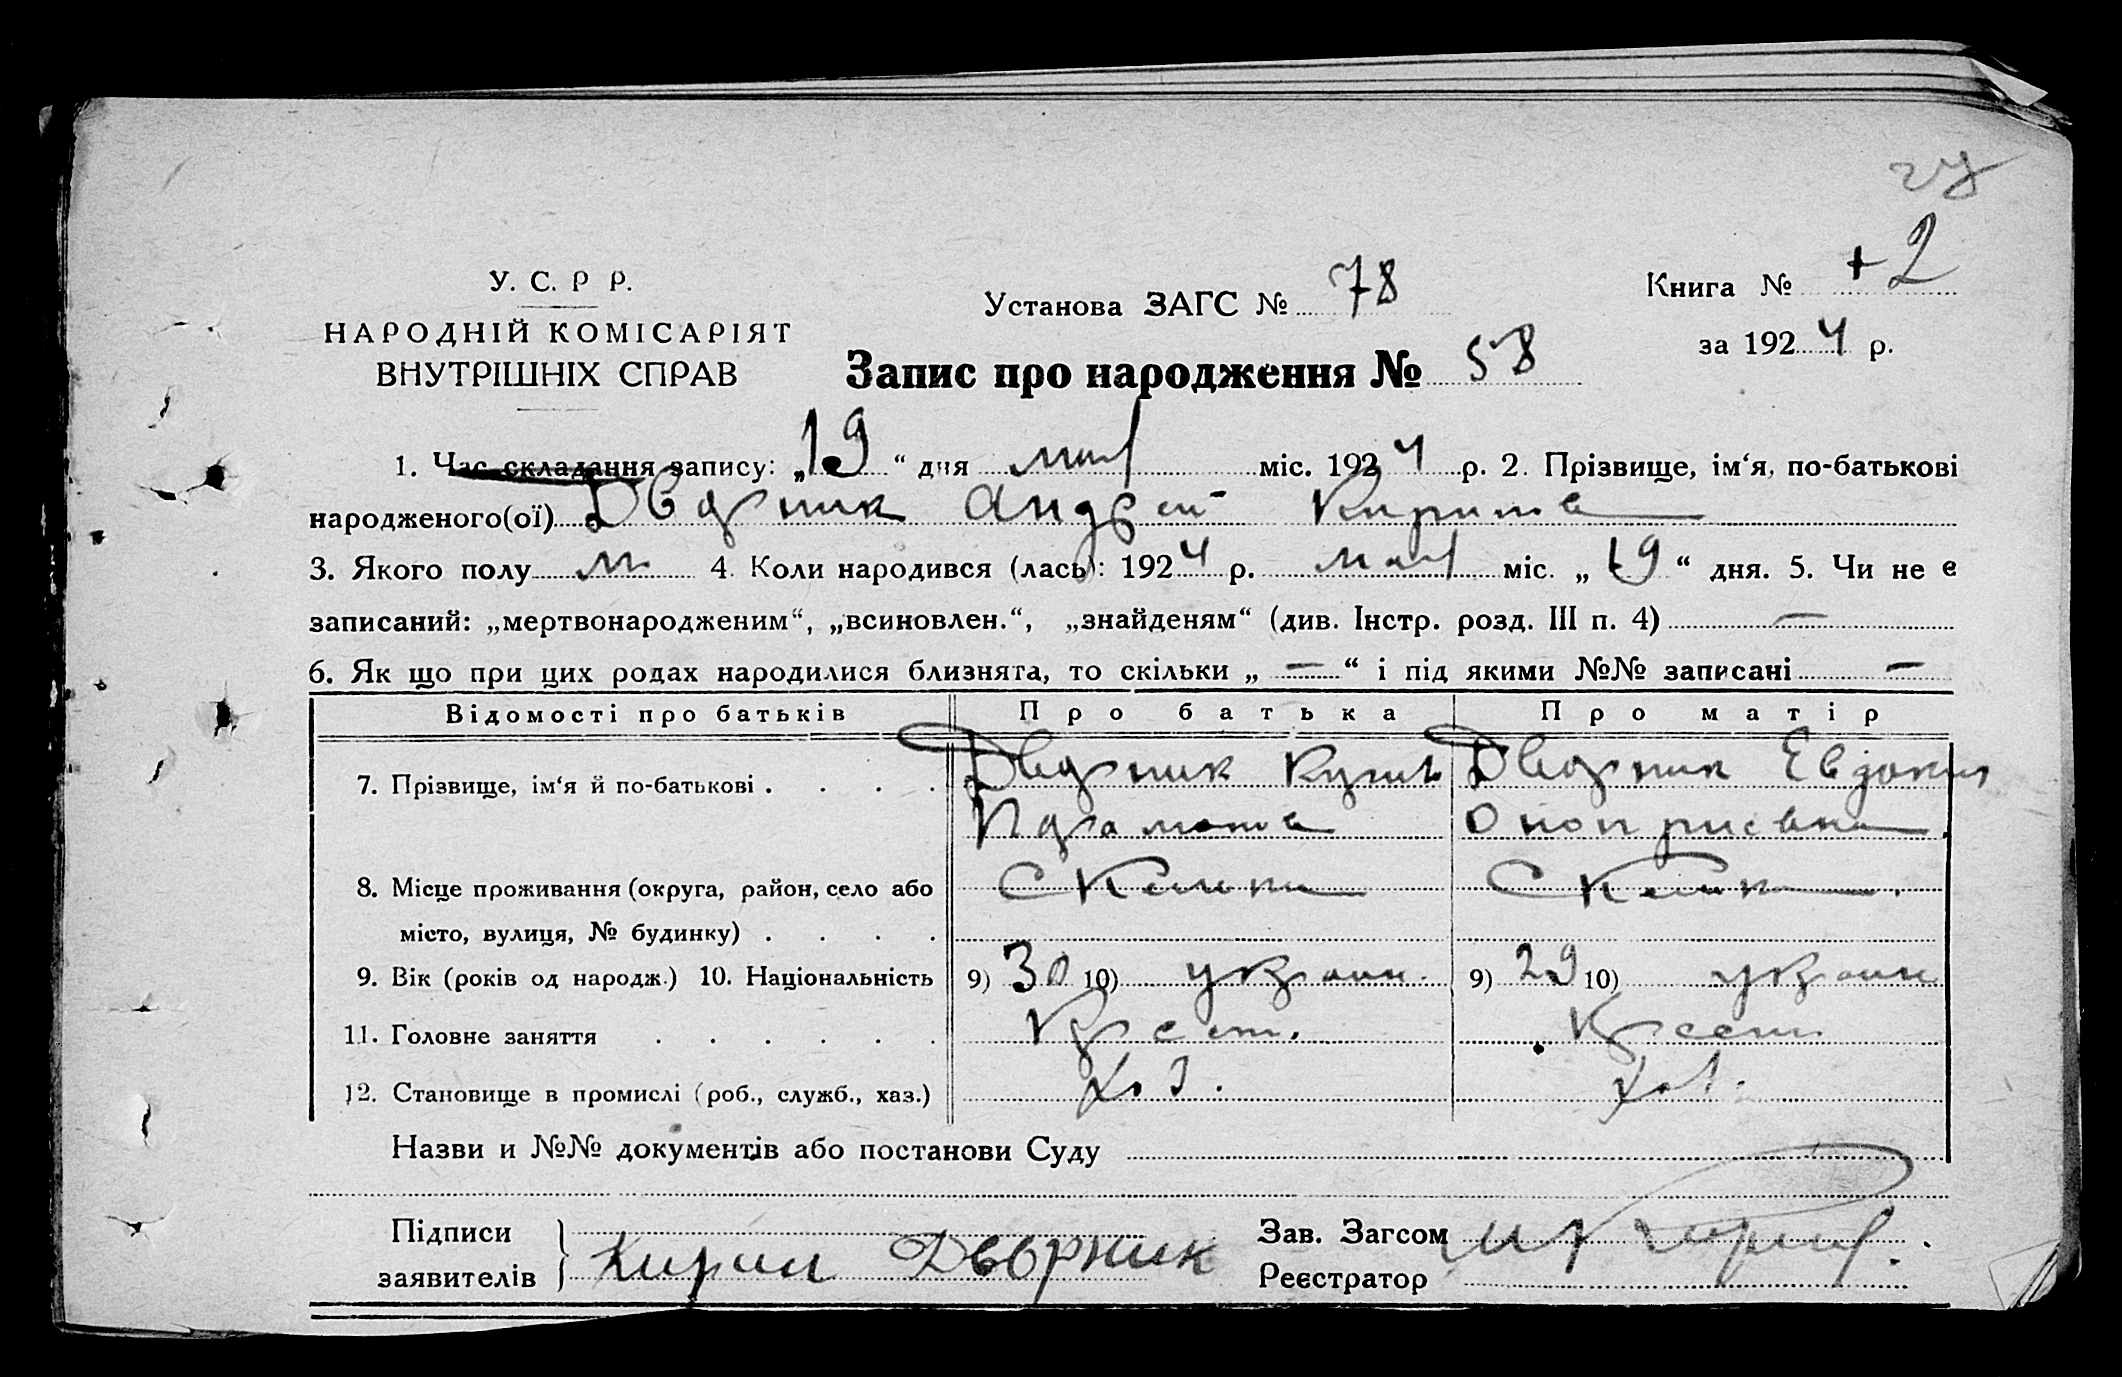 +2
У. С. Р Р.
Установа ЗАГС № 78
Книга №
НАРОДНІЙ КОМІСАРІЯТ
за 1924 р.
ВНУТРІШНІХ СПРАВ
Запис про народження № 58
1. Час складання запису: „19“ дня мая міс. 1924 р. 2. Прізвище, ім‘я, по-батькові
народженого(ої) Дворник Андрей
3. Якого полу м. 4. Коли народився (лась): 1924 р. мая міс. „19“ дня. 5. Чи не є
записаний: „мертвонародженим“, „всиновлен.“, „знайденям“ (див. Інстр. розд. III п. 4) —
6. Як що при цих родах народилися близнята, то скільки „ — “ і під якими №№ записані —
Відомості про батьків Про батька Про матір
7. Прізвище, ім‘я й по-батькові . . . . Дворник Дворник Евдокия
Оноприевна
8. Місце проживання (округа, район, село або
місто, вулиця, № будинку) . . . .
9. Вік (років од народж.) 10. Національність 9) 30 10) украин. 9) 29 10) украин
11. Головне заняття . . . . . . Крест. Крест.
12. Становище в промислі (роб., служб., хаз.) Хоз. Хоз.
Назви и №№ документів або постанови Суду
Підписи
заявителів Кирил Дворник
Зав. Загсом
Реєстратор